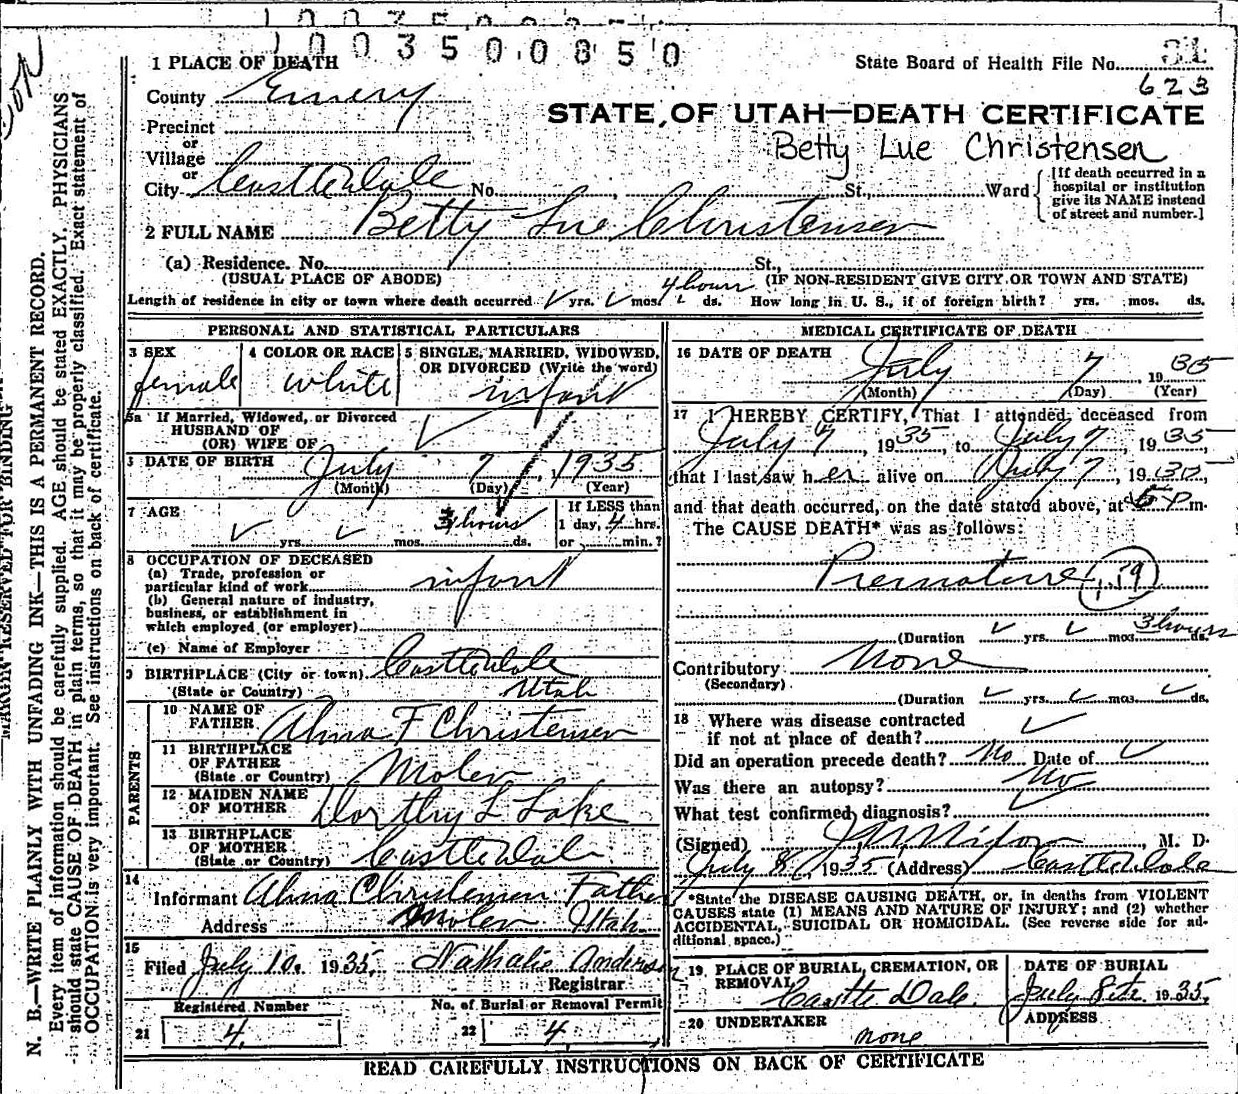 1003500850
1 PLACE OF DEATH
State Board of Health File No. 81
623
County Emery
STATE OF UTAH—DEATH CERTIFICATE
Precinct
or
Village
Betty Lue Christensen
or
City Castle Dale No. St., Ward
[If death occurred in a
hospital or institution
give its NAME instead
of street and number.]
2 FULL NAME Betty Lue Christensen
(a) Residence. No. St.,
(USUAL PLACE OF ABODE) (IF NON-RESIDENT GIVE CITY OR TOWN AND STATE)
4 hours
Length of residence in city or town where death occurred yrs. mos. ds. How long in U. S., if of foreign birth? yrs. mos. ds.
PERSONAL AND STATISTICAL PARTICULARS
3 SEX 4 COLOR OR RACE 5 SINGLE, MARRIED, WIDOWED,
OR DIVORCED (Write the word)
female white infant
5a If Married, Widowed, or Divorced
HUSBAND OF
(OR) WIFE OF
DATE OF BIRTH July 7, 1935
(Month) (Day) (Year)
7 AGE
If LESS than
yrs. mos. hours ds. 1 day, 4 hrs.
or min.?
8 OCCUPATION OF DECEASED
(a) Trade, profession or
particular kind of work infant
(b) General nature of industry,
business, or establishment in
which employed (or employer)
(c) Name of Employer
9 BIRTHPLACE (City or town) Castle Dale
(State or Country) Utah
PARENTS
10 NAME OF
FATHER Alma F Christensen
11 BIRTHPLACE
OF FATHER
(State or Country) Molen
12 MAIDEN NAME
OF MOTHER Dorthy L Lake
13 BIRTHPLACE
OF MOTHER
(State or Country) Castle Dale
14
Informant Alma Christensen Father
Address Molen Utah
15
Filed July 10, 1935, Nathalie Anderson
Registrar
Registered Number No. of Burial or Removal Permit
21 4 22 4
MEDICAL CERTIFICATE OF DEATH
16 DATE OF DEATH
July 7, 1935
(Month) (Day) (Year)
17 I HEREBY CERTIFY, That I attended deceased from
July 7, 1935, to July 7, 1935,
that I last saw her alive on July 7, 1935,
and that death occurred, on the date stated above, at 5 P m.
The CAUSE DEATH* was as follows:
Premature 159
(Duration yrs. mos. 3 hours ds.
Contributory None
(Secondary)
(Duration yrs. mos. ds.
18 Where was disease contracted
if not at place of death?
Did an operation precede death? No Date of
Was there an autopsy? No
What test confirmed diagnosis?
(Signed) Nixon, M. D.
July 8, 1935 (Address) Castle Dale
*State the DISEASE CAUSING DEATH, or, in deaths from VIOLENT
CAUSES state (1) MEANS AND NATURE OF INJURY; and (2) whether
ACCIDENTAL, SUICIDAL OR HOMICIDAL. (See reverse side for ad-
ditional space.)
19 PLACE OF BURIAL, CREMATION, OR
REMOVAL
Castle Dale
DATE OF BURIAL
July 8th 1935.
20 UNDERTAKER
none
ADDRESS
READ CAREFULLY INSTRUCTIONS ON BACK OF CERTIFICATE
MARGIN RESERVED FOR BINDING
N. B.—WRITE PLAINLY WITH UNFADING INK—THIS IS A PERMANENT RECORD.
Every item of information should be carefully supplied. AGE should be stated EXACTLY. PHYSICIANS
should state CAUSE OF DEATH in plain terms, so that it may be properly classified. Exact statement of
OCCUPATION is very important. See instructions on back of certificate.